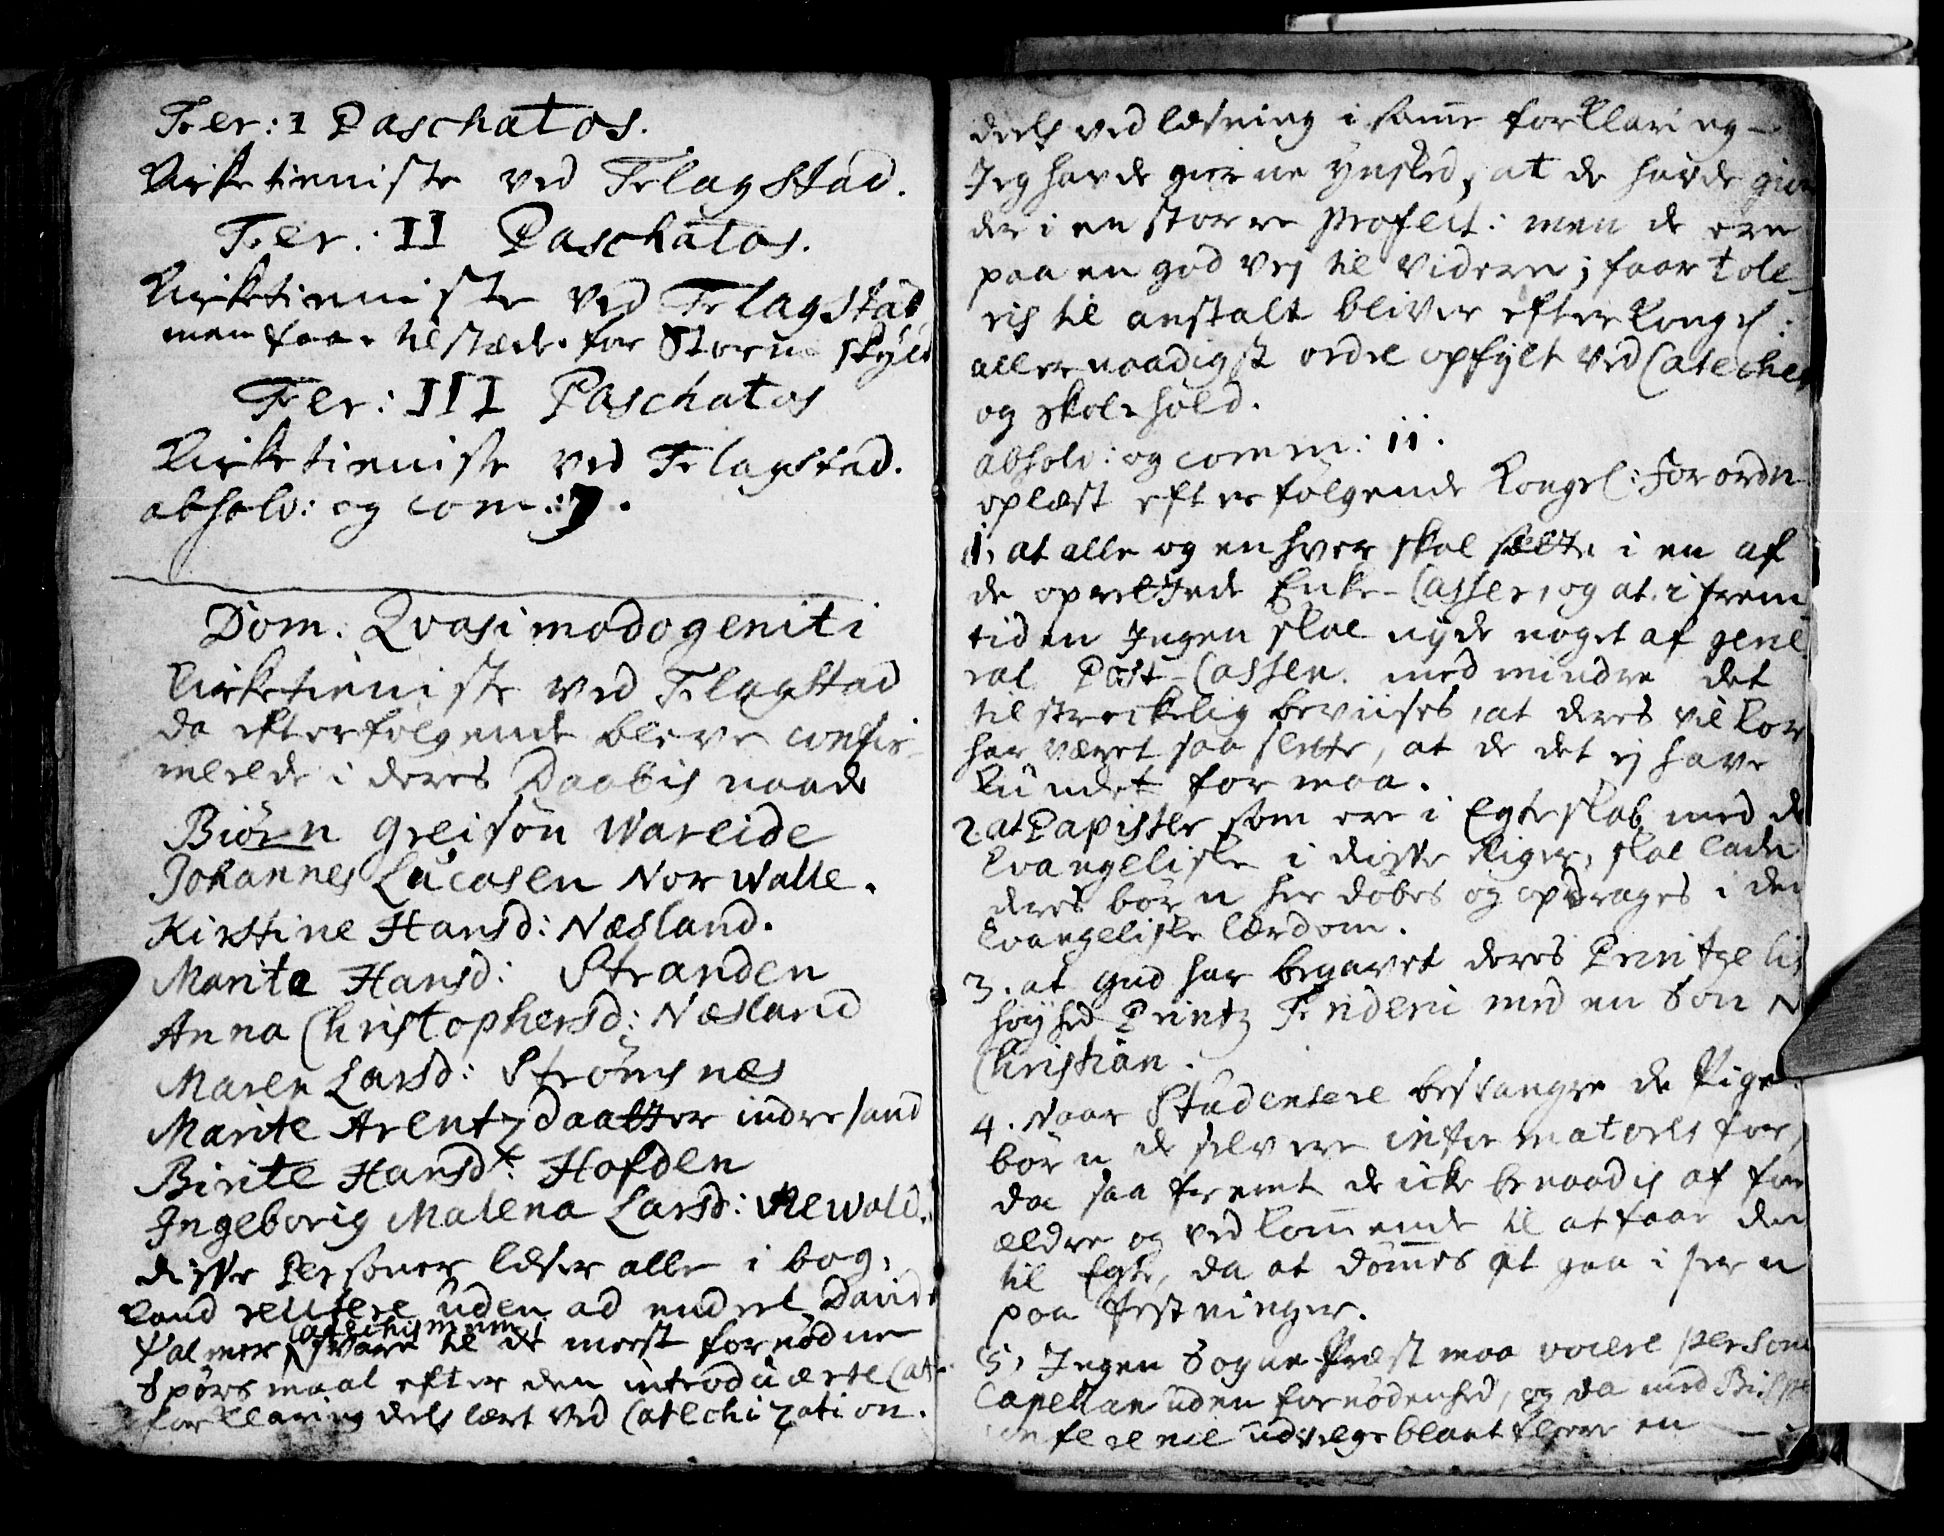 Fer: 1 Paschatos.
Kirketieniste ved Flagstad.
Fer: II Paschatos.
Kirketieniste ved Flagstad
men faa tilstæde for Storm skyld
Fer: III Paschatos
Kirketieniste ved Flagstad.
absolv: og com: 7.
Dom. Qvasimodogeniti
Kirketieniste ved Flagstad
da efterfølgende bleve confir-
merede i deres Daabis naade
Biørn Greisøn Wareide
Johannes Lucasen Nor Walle.
Kirstine Hansd: Næsland.
Marite Hansd: Stranden
Anna Christophersd: Næsland
Maren Larsd: Strømsnæs
Marite Arentzdaatter indresand
Birite Hansd: Hofden
Ingeborig Malena Larsd: Newold.
disse Personer læser alle i bog,
kand recitere uden ad endeel Davids
Psalmer, Catechismum
svare til de meest fornødne
Spørsmaal efter den introducerte Cat:
forklaring deels lært ved Catechization.
deels ved læsning i samme forklaring –
Jeg havde gierne ynsked, at de havde gior
der i en større Profect: men de ere
paa en god vej til videre; faar tole
ris til anstalt bliver efter Kongel:
allernaadigst ordre opfylt ved Cateches
og skolehold.
absolv: og comm: 11.
oplæst efterfølgende Kongel: Forordn
1, at alle og enhver skal sætte i en af
de oprettede Enke-Casser, og at i frem
tiden Ingen skal nyde noget af gene
ral Post-Cassen. med mindre det
tilstreckelig beviises, at deres vilkor
har været saa slette, at de det ej have
kundet formaa.
2. at Papister som ere i Egteskab med de
Evangeliske i disse Riger, skal lade
deres børn her døbes og opdrages i den
Evangeliske lærdom.
3. at Gud har begavet deres Printzeli
høyhed Printz Friderici med en Søn N
Christian.
4. Naar Studentere besvangre de Pige
børn de selv ere informatores for,
da saa fremt de icke benaadis af for
ældre og vedkommende til at faae dem
til Egte, da at dømmes at gaa i jern
paa festninger.
5, Ingen Sogne-Præst maa vociere person
Capellan uden fornødenhed, og da med Bispe
conference udvelge blant fleere en –